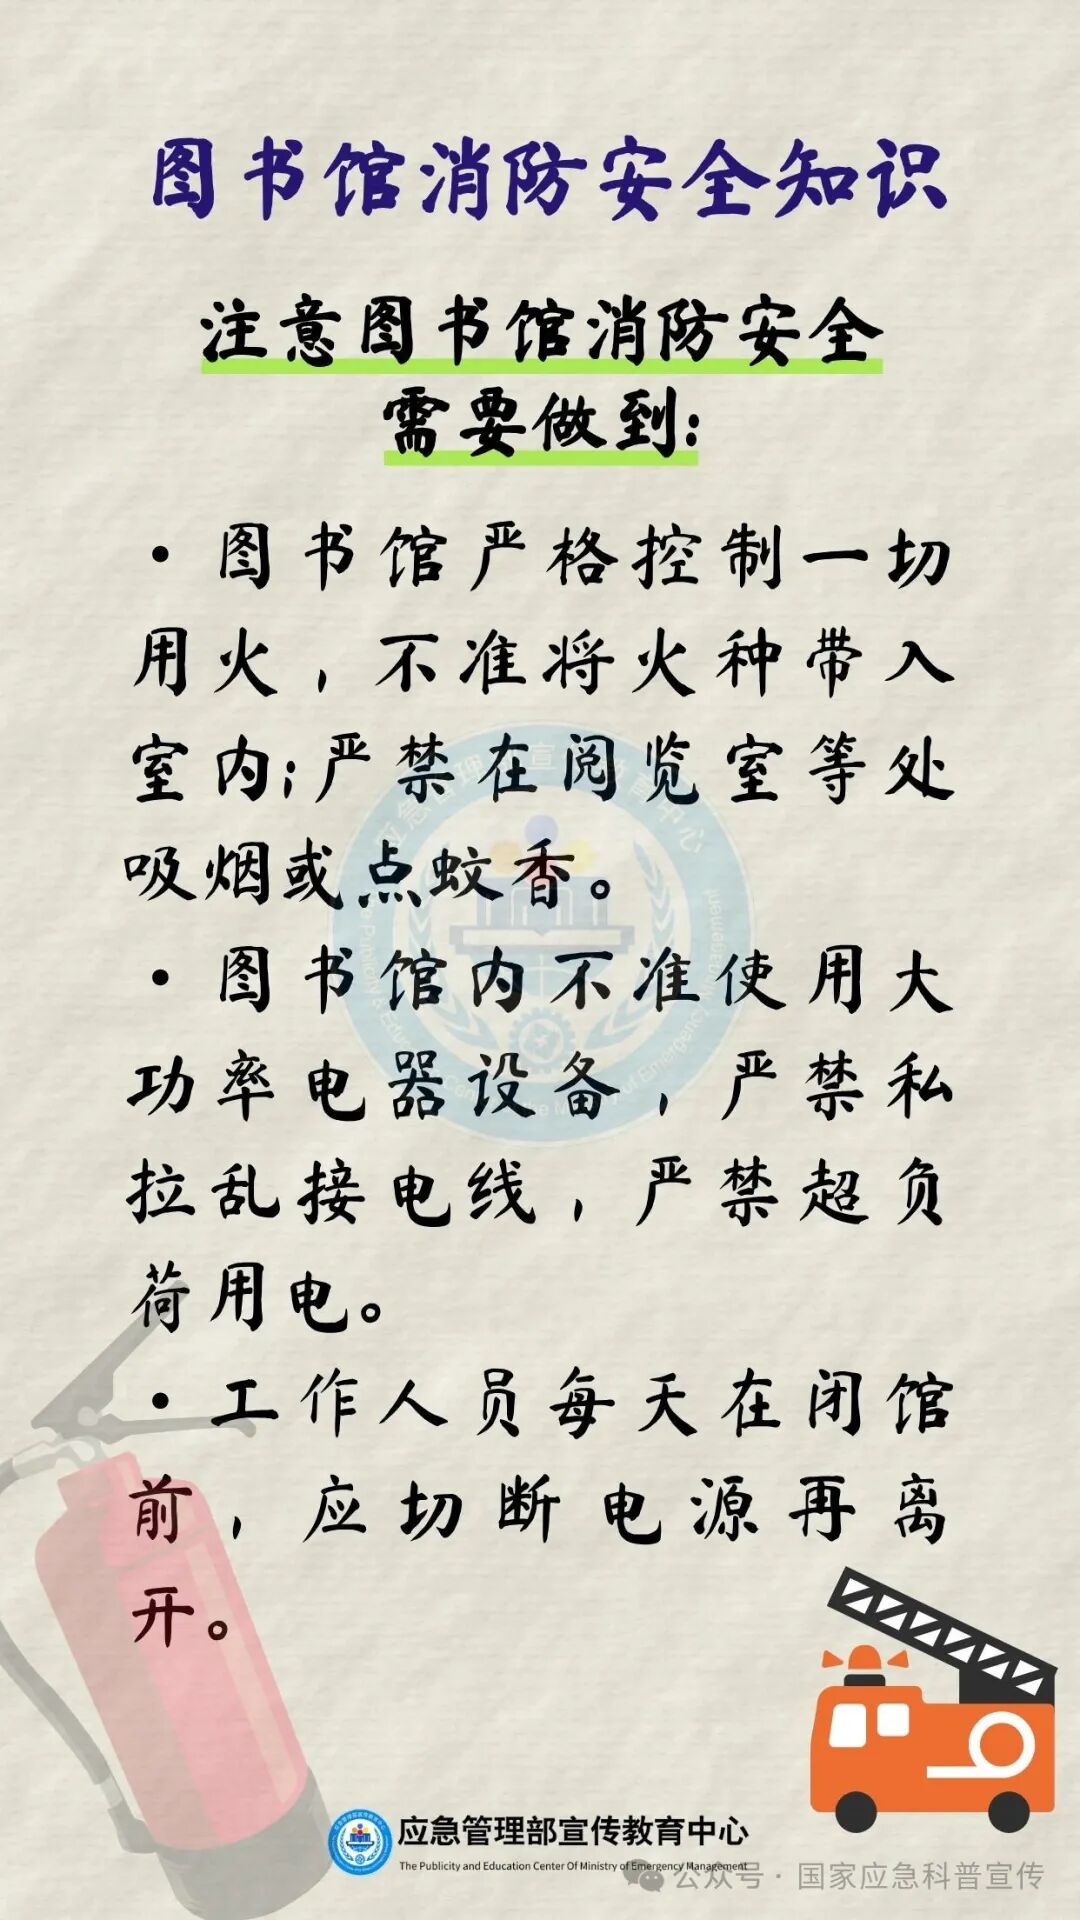 图书馆消防安全知识
注意图书馆消防安全
需要做到:
·图书馆严格控制一切
用火，不准将火种带入
室内;严禁在阅览室等处
吸烟或点蚊香。
·图书馆内不准使用大
功率电器设备，严禁私
拉乱接电线，严禁超负
荷用电。
·工作人员每天在闭馆
前，应切断电源再离
开。
应急管理部宣传教育中心
The Publicity and Education Center Of Ministry of Emergency Management
公众号·国家应急科普宣传